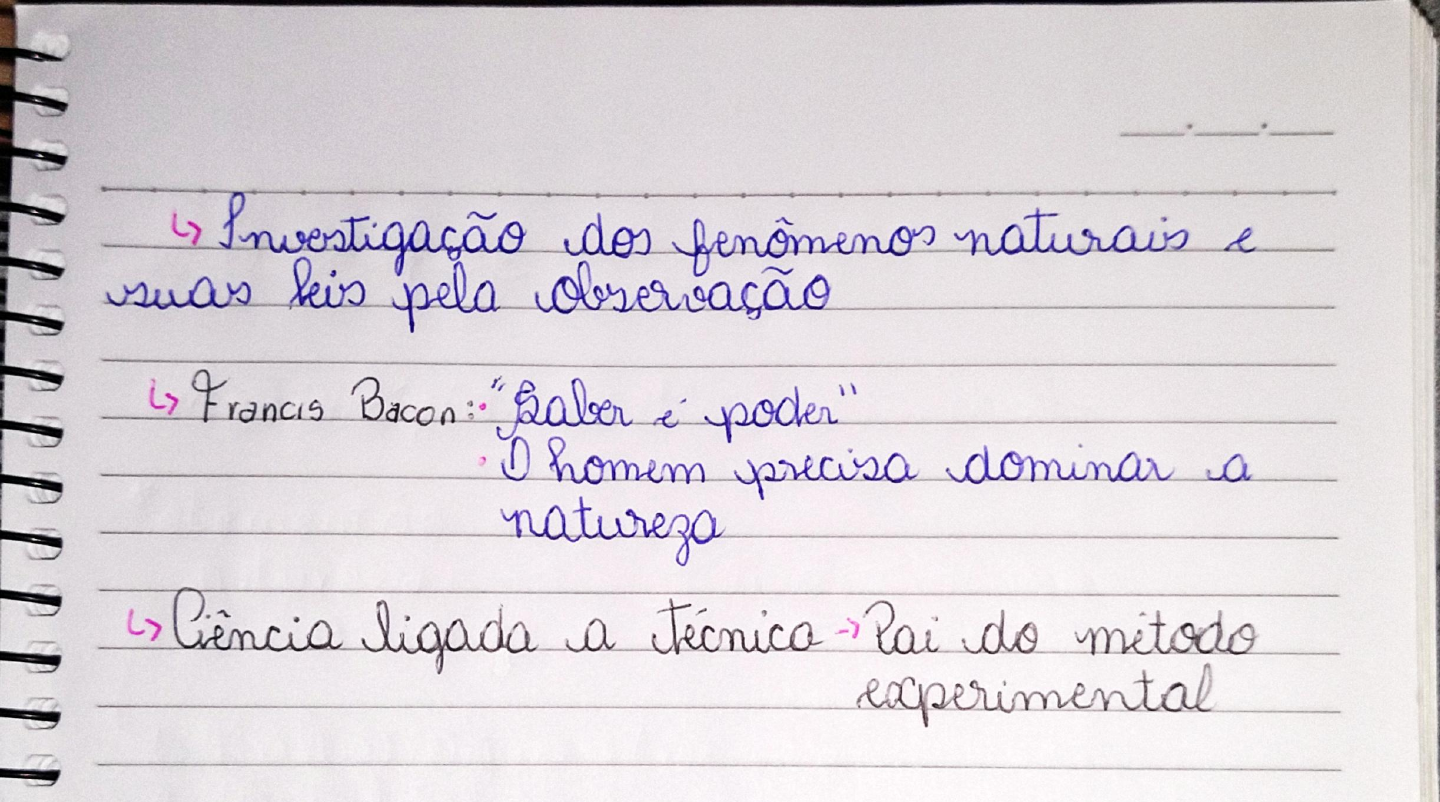 ↳ Investigação dos fenômenos naturais e
suas leis pela observação
↳ Francis Bacon: • "Saber é poder"
• O homem precisa dominar a
natureza
↳ Ciência ligada a técnica → Pai do método
experimental